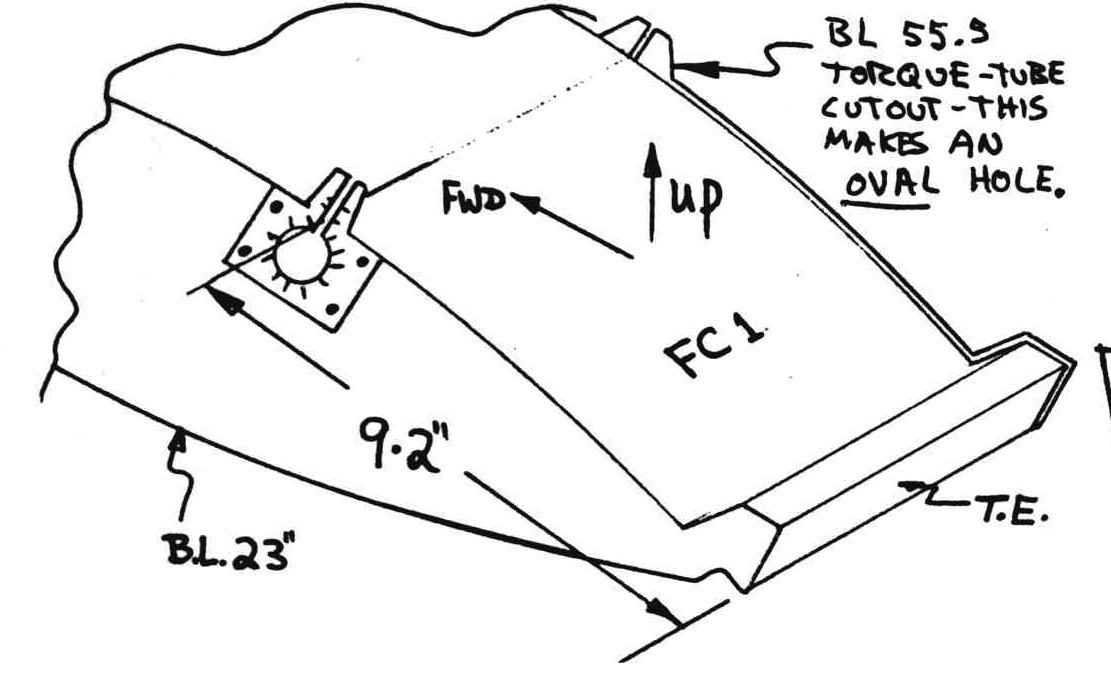 BL 55.5
TORQUE-TUBE
CUTOUT-THIS
MAKES AN
OVAL HOLE.
FWD
UP
FC1
9.2"
T.E.
B.L. 23"